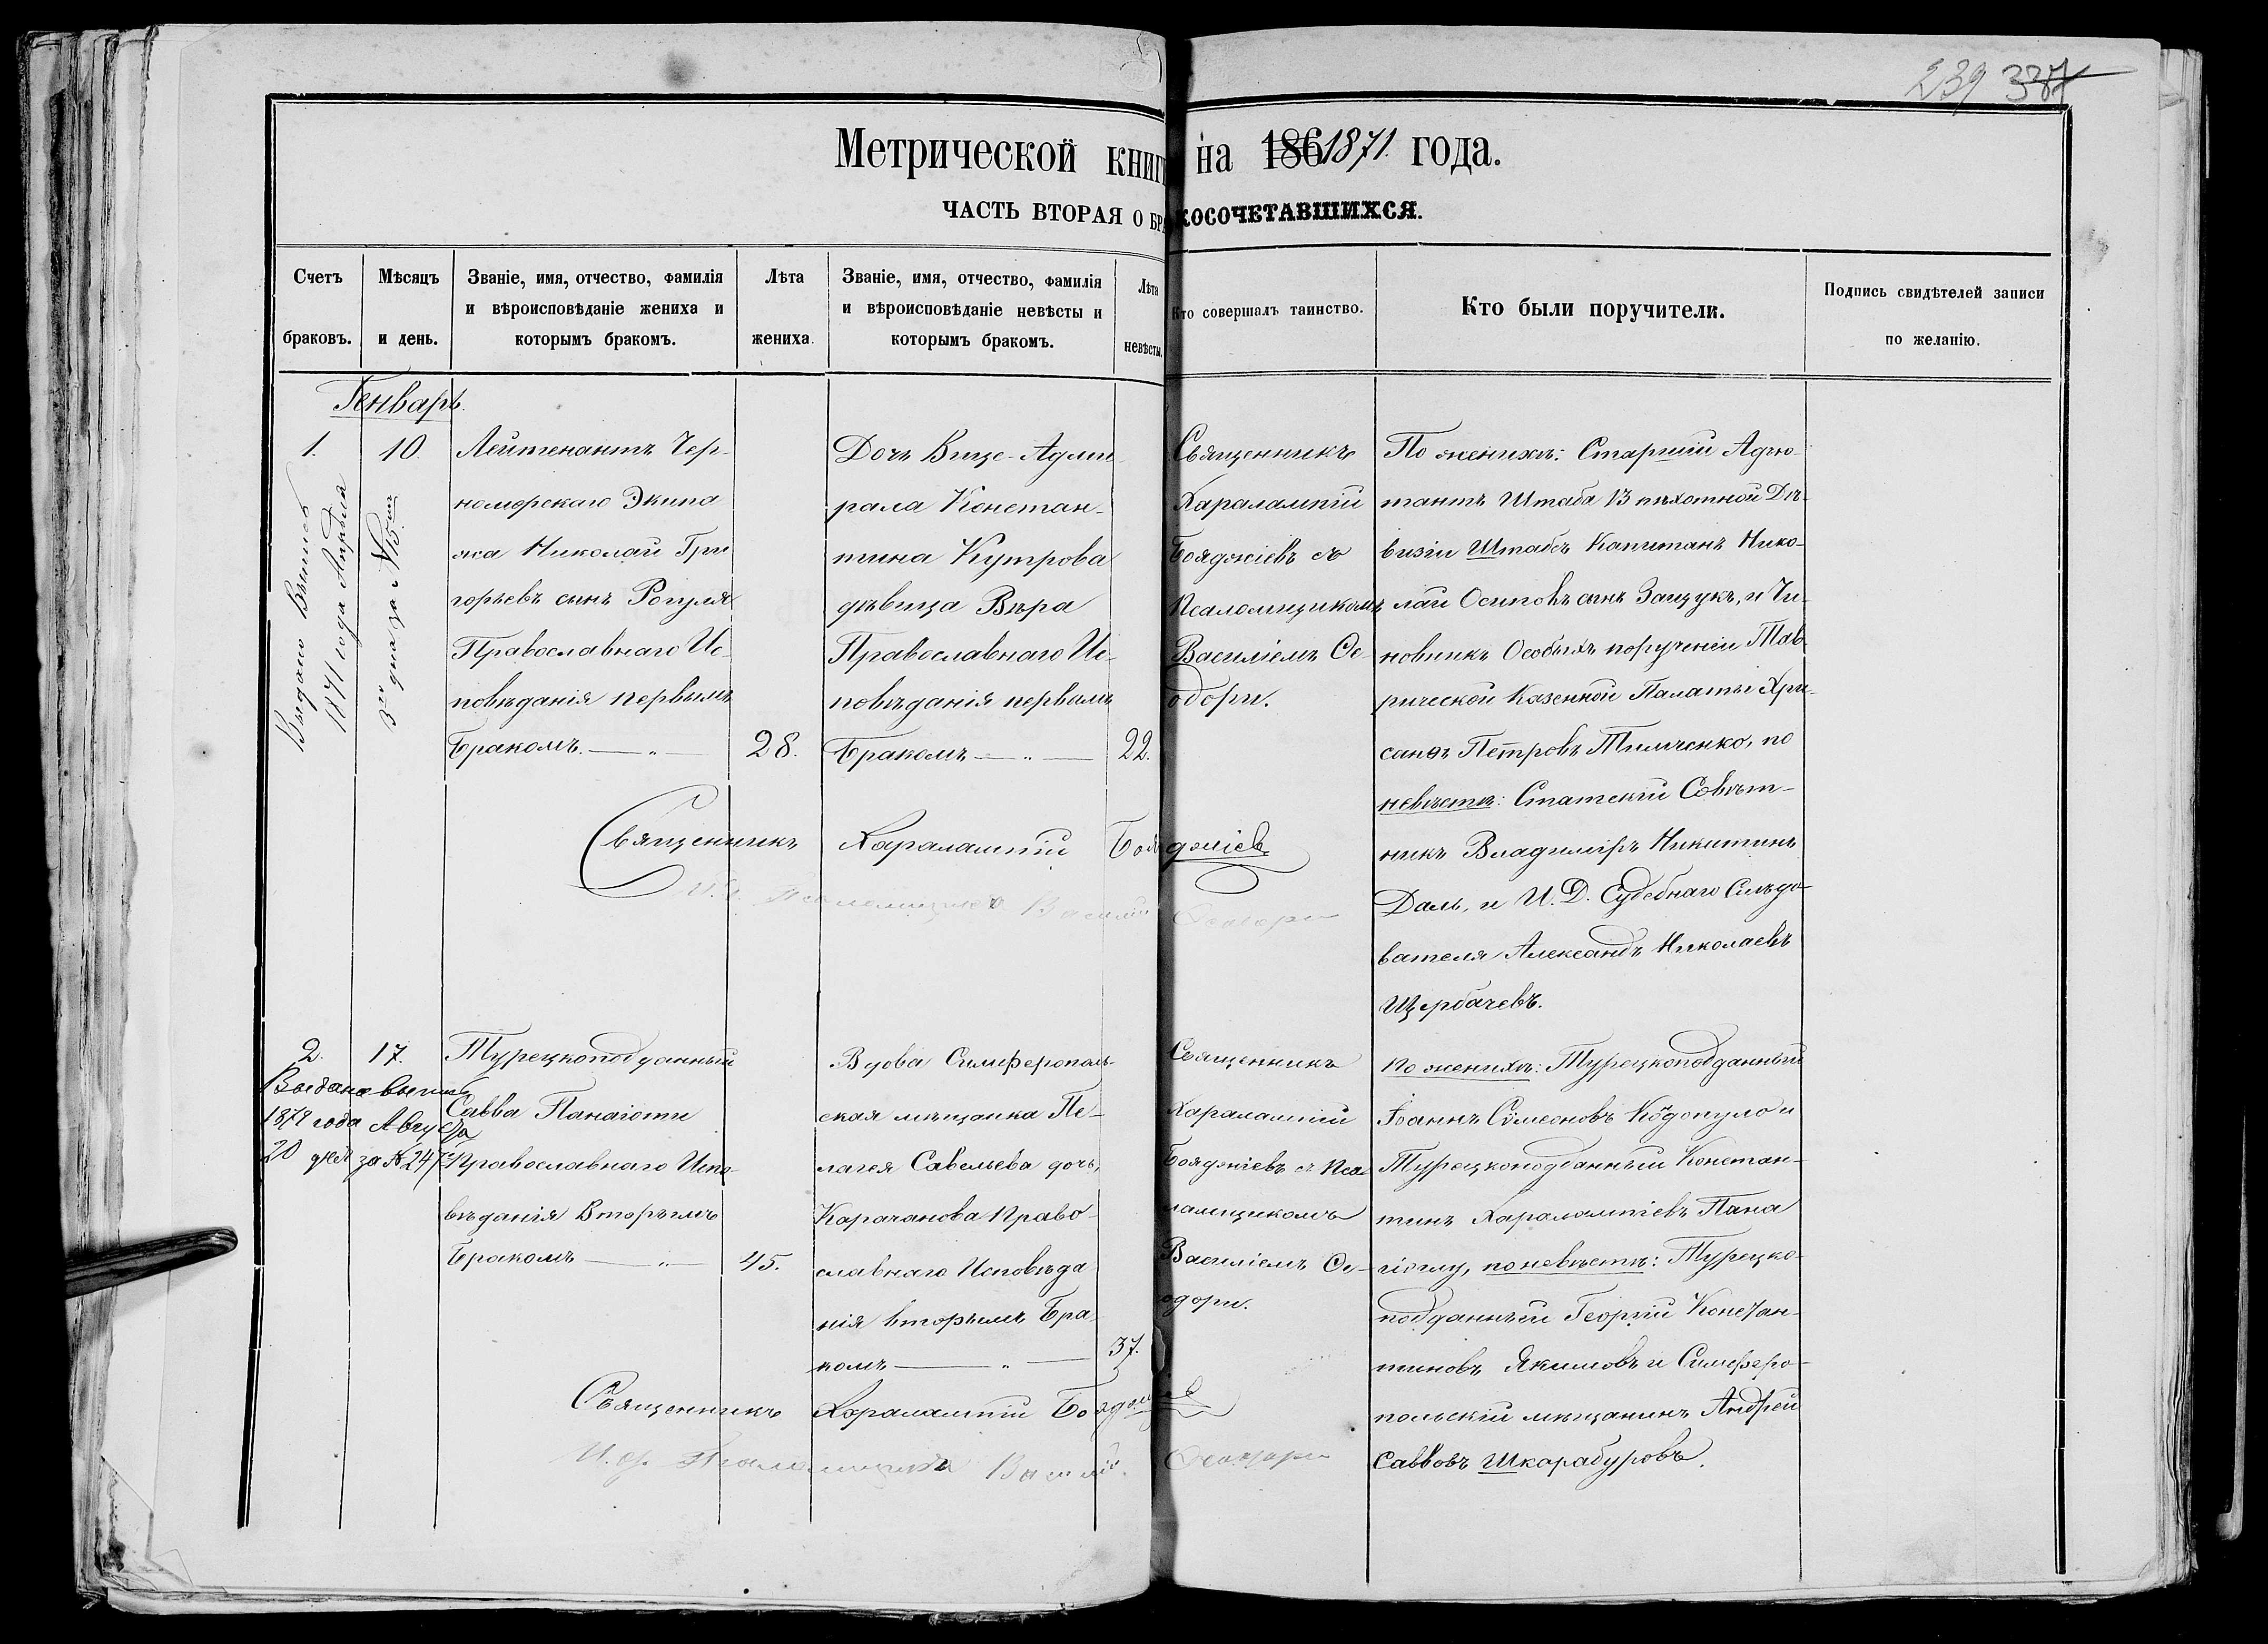 239 337
Метрической книги на 186 1871. года.
ЧАСТЬ ВТОРАЯ О БРАКОСОЧЕТАВШИХСЯ.
Счетъ браковъ.
Мѣсяцъ и день.
Званіе, имя, отчество, фамилія
и вѣроисповѣданіе жениха и
которымъ бракомъ.
Лѣта жениха.
Званіе, имя, отчество, фамилія
и вѣроисповѣданіе невѣсты и
которымъ бракомъ.
Лѣта невѣсты.
Кто совершалъ таинство.
Кто были поручители.
Подпись свидѣтелей записи
по желанію.
Генварь.
1.
10.
Выдано Выпись
1871 года Апрѣля
3го дня за № 15м
Лейтенантъ Чер-
номорскаго Экипа
жа Николай Гри
горьевъ сынъ Рогуля
Православнаго Ис-
повѣданія первымъ
Бракомъ. — „ —
28.
Дочь Вице-Адми
рала Констан-
тина Кутрова
дѣвица Вѣра
Православнаго Ис-
повѣданія первымъ
Бракомъ — „ —
22.
Священникъ
Харалампій
Бояджіевъ съ
Псаломщикомъ
Василіемъ Ѳе-
одори.
По женихѣ: Старшій Адъю-
тантъ Штаба 13 пѣхотной Ди-
визіи Штабсъ Капитанъ Нико-
лай Осиповъ сынъ Защукъ, и Чи-
новникъ Особыхъ порученій Тав-
рической Казенной Палаты Хри-
санѳъ Петровъ Тимченко, по
невѣстѣ: Статскій Совѣт-
никъ Владиміръ Никитинъ
Даль, и И. Д. Судебнаго Слѣдо-
вателя Александъ Николаевъ
Щербачевъ.
Священникъ Харалампій Бояджіевъ
И. д. Псаломщика Василій Ѳеодори
2.
17.
Выдана выпись
1878 года Августа
20 дня за № 247
Турецкоподданный
Савва Панаіоти
Православнаго Испо-
вѣданія Вторымъ
Бракомъ — „ —
45.
Вдова Симферополь-
ская мѣщанка Пе-
лагея Савельева дочь,
Карачанова Право-
славнаго Исповѣда
нія вторымъ Бра-
комъ — „ —
37.
Священникъ
Харалампій
Бояджіевъ съ Пса
ломщикомъ
Василіемъ Ѳе-
одори.
По женихѣ: Турецкоподданный
Іоаннъ Сѵмеоновъ Кодопуло и
Турецкоподданный Констан-
тинъ Харалампіевъ Пана
гіоглу, по невѣстѣ: Турецко-
подданный Георгій Констан-
тиновъ Якимовъ и Симферо-
польскій мѣщанинъ Андрей
Саввовъ Шкарабуровъ.
Священникъ Харалампій Бояджіевъ
И. д. Псаломщика Василій Ѳеодори